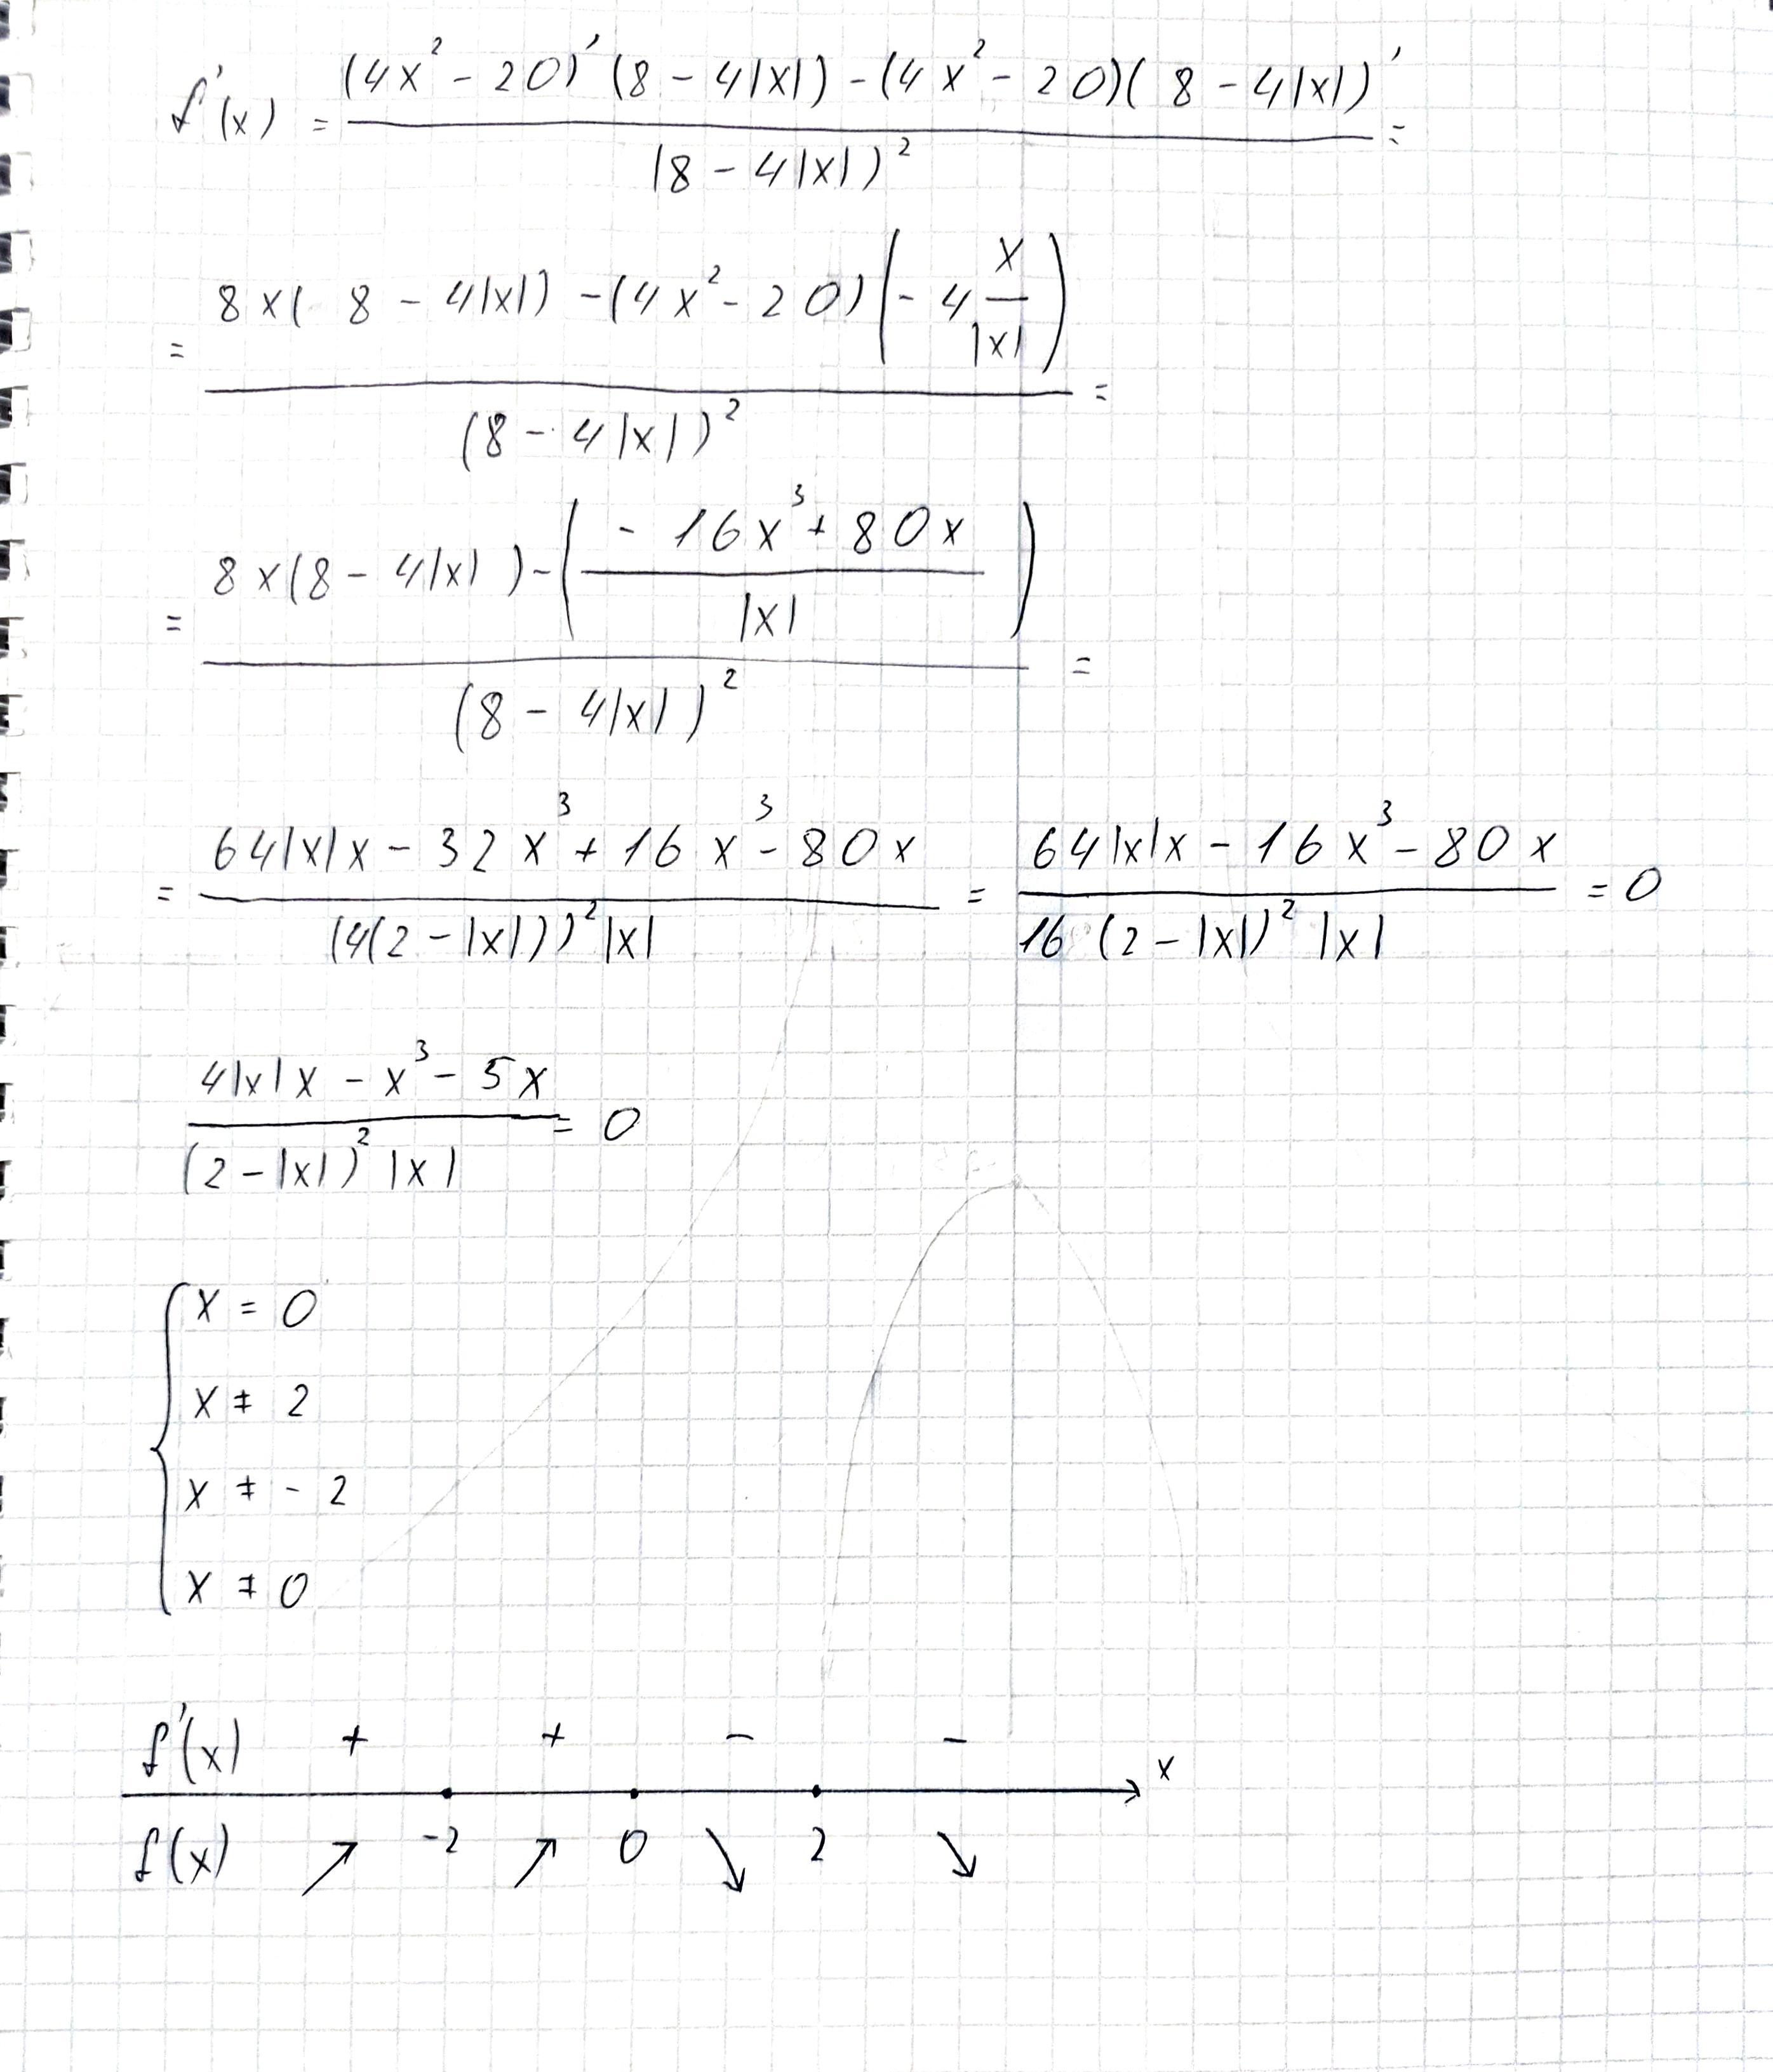 f'(x) = ((4x² - 20)' (8 - 4|x|) - (4x² - 20)(8 - 4|x|)') / (8 - 4|x|)² =
= (8x(8 - 4|x|) - (4x² - 20)(-4 x/|x|)) / (8 - 4|x|)² =
= (8x(8 - 4|x|) - ((-16x³ + 80x) / |x|)) / (8 - 4|x|)² =
= (64|x|x - 32x³ + 16x³ - 80x) / ((4(2 - |x|))² |x|) = (64|x|x - 16x³ - 80x) / (16 (2 - |x|)² |x|) = 0
(4|x|x - x³ - 5x) / ((2 - |x|)² |x|) = 0
{ x = 0
x ≠ 2
x ≠ - 2
x ≠ 0
f'(x) + + - - x
f(x) ↗ -2 ↗ 0 ↘ 2 ↘